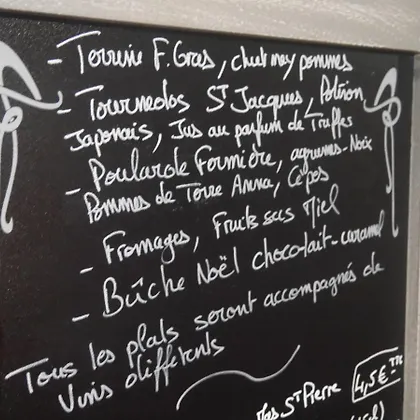 - Terrine F. Gras, chutney pommes
- Tournedos St Jacques, Potiron
Japonais, Jus au parfum de Truffes
- Poularde Fermière, agrumes-Noix
Pommes de Terre Anna, Cèpes
- Fromages, Fruits secs Miel
- Bûche Noël choco-lait-caramel
Tous les plats seront accompagnés de
Vins différents
St Pierre
4,5€ TTC